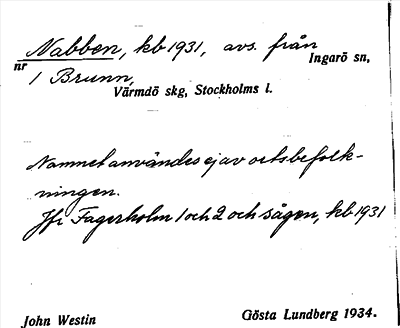 Nabben, kb 1931, avs. från
nr 1 Brunn, Ingarö sn,
Värmdö skg, Stockholms l.
Namnet användes ej av ortsbefolk-
ningen.
Jfr Fagerholm 1 och 2 och sägen, kb 1931
John Westin Gösta Lundberg 1934.